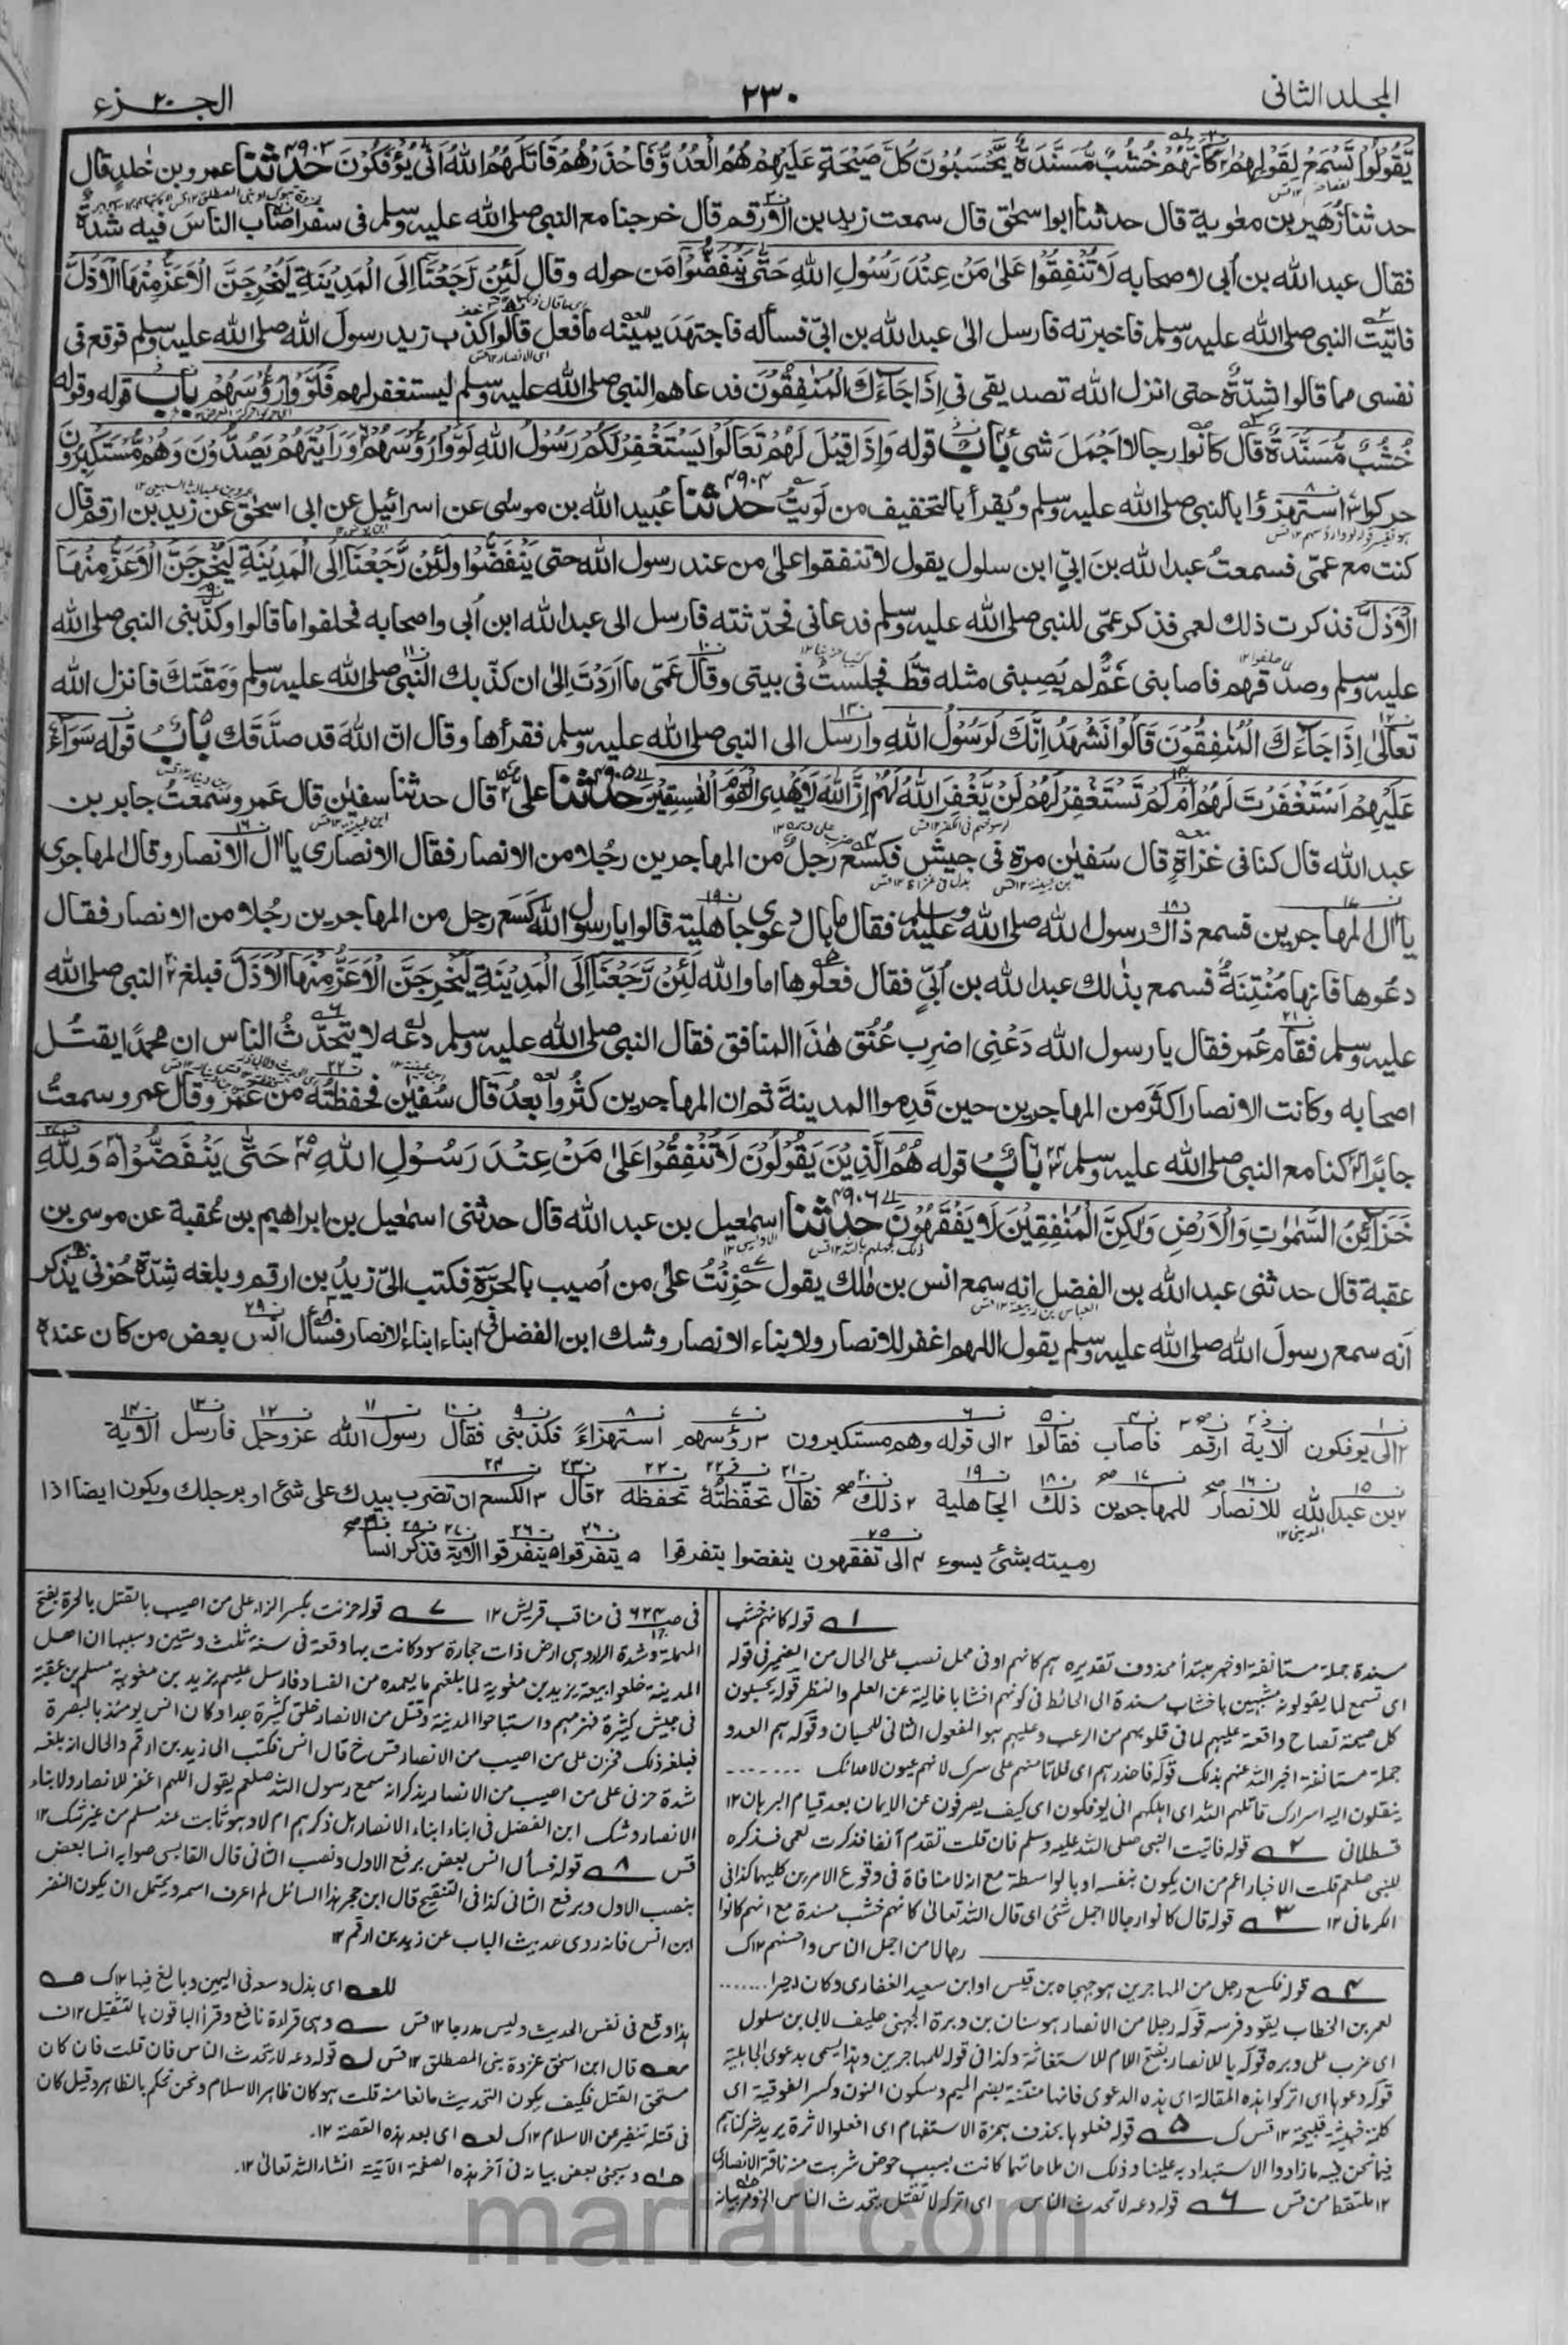 المجلد الثانی
۲۳۰
الجزء ۲۰
يَّقُولُوْا تَسْمَعْ لِقَوْلِهِمْ كَاَنَّهُمْ خُشُبٌ مُّسَنَّدَةٌ يَحْسَبُوْنَ كُلَّ صَيْحَةٍ عَلَيْهِمْ هُمُ الْعَدُوُّ فَاحْذَرْهُمْ قَاتَلَهُمُ اللهُ اَنّٰى يُؤْفَكُوْنَ ۴۹۰۳ حدثنا عمرو بن خٰلد قال
حدثنا زُهَير بن معٰوية قال حدثنا ابو اسحٰق قال سمعت زيد بن الارقم قال خرجنا مع النبی صلی الله عليه وسلم فی سفر اصاب الناس فيه شدة
فقال عبد الله بن اُبی لاصحابه لَا تُنْفِقُوْا عَلٰى مَنْ عِنْدَ رَسُوْلِ اللهِ حَتّٰى يَنْفَضُّوْا مَن حوله وقال لَئِنْ رَجَعْنَا اِلَى الْمَدِيْنَةِ لَيُخْرِجَنَّ الْاَعَزُّ مِنْهَا الْاَذَلَّ
فاتيت النبی صلی الله عليه وسلم فاخبرته فارسل الی عبد الله بن ابیّ فسأله فاجتهد يمينه ما فعل قالوا كذب زيد رسول الله صلی الله عليه وسلم فوقع فی
نفسی مما قالوا شدة حتی انزل الله تصديقی فی اِذَا جَاءَكَ الْمُنٰفِقُوْنَ فدعاهم النبی صلی الله عليه وسلم ليستغفر لهم فلَوَّوْا رُؤُسَهُمْ باب قوله وقوله
خُشُبٌ مُّسَنَّدَةٌ قال كانوا رجالا اجمل شیٔ باب قوله وَاِذَا قِيْلَ لَهُمْ تَعَالَوْا يَسْتَغْفِرْ لَكُمْ رَسُوْلُ اللهِ لَوَّوْا رُؤُسَهُمْ وَرَاَيْتَهُمْ يَصُدُّوْنَ وَهُمْ مُّسْتَكْبِرُوْنَ
حركوا استهزؤا بالنبی صلی الله عليه وسلم ويُقرأ بالتخفيف من لَوَيتُ ۴۹۰۴ حدثنا عُبيد الله بن موسٰی عن اسرائيل عن ابی اسحٰق عن زيد بن ارقم قال
كنت مع عمّی فسمعتُ عبد الله بن ابیّ ابن سلول يقول لا تنفقوا علٰی من عند رسول الله حتی يَنْفَضُّوْا ولَئِنْ رَّجَعْنَا اِلَى الْمَدِيْنَةِ لَيُخْرِجَنَّ الْاَعَزُّ مِنْهَا
الْاَذَلَّ فذكرت ذلك لعمی فذكر عمّی للنبی صلی الله عليه وسلم فدعانی فحدّثته فارسل الی عبد الله ابن اُبی واصحابه فحلفوا ما قالوا وكذّبنی النبی صلی الله
عليه وسلم وصدّقهم فاصابنی غمٌّ لم يُصِبنی مثله قطّ فجلستُ فی بيتی وقال عَمّی ما اردتَ الٰی ان كذّبك النبی صلی الله عليه وسلم ومَقَتَكَ فانزل الله
تعالٰی اِذَا جَاءَكَ الْمُنٰفِقُوْنَ قَالُوْا نَشْهَدُ اِنَّكَ لَرَسُوْلُ اللهِ وارسل الی النبی صلی الله عليه وسلم فقرأها وقال انّ الله قد صدّقك باب قوله سَوَاءٌ
عَلَيْهِمْ اَسْتَغْفَرْتَ لَهُمْ اَمْ لَمْ تَسْتَغْفِرْ لَهُمْ لَنْ يَّغْفِرَ اللهُ لَهُمْ اِنَّ اللهَ لَا يَهْدِی الْقَوْمَ الْفٰسِقِيْنَ ۴۹۰۵ حدثنا علی قال حدثنا سفيٰن قال عَمرو سمعتُ جابر بن
عبد الله قال كنا فی غزاةٍ قال سُفيٰن مرة فی جيش فكسع رجل من المهاجرين رجُلا من الانصار فقال الانصاری يا اٰل الانصار وقال المهاجری
يا اٰل المهاجرين فسمع ذاك رسول الله صلی الله عليه وسلم فقال ما بال دعوی جاهلية قالوا يا رسول الله كسع رجل من المهاجرين رجُلا من الانصار فقال
دعُوها فانها مُنْتِنَةٌ فسمع بذٰلك عبد الله بن اُبیٍّ فقال فعلُوها اما والله لَئِنْ رَّجَعْنَا اِلَى الْمَدِيْنَةِ لَيُخْرِجَنَّ الْاَعَزُّ مِنْهَا الْاَذَلَّ فبلغ النبی صلی الله
عليه وسلم فقام عُمر فقال يا رسول الله دَعْنِی اضرب عُنُق هٰذا المنافق فقال النبی صلی الله عليه وسلم دعه لا يتحدّثُ الناس ان محمدًا يقتُل
اصحابه وكانت الانصار اكثر من المهاجرين حين قَدِموا المدينة ثم ان المهاجرين كثُروا بعدُ قال سُفيٰن فحفظتُه من عَمرو قال عمرو سمعتُ
جابرًا كنا مع النبی صلی الله عليه وسلم باب قوله هُمُ الَّذِيْنَ يَقُوْلُوْنَ لَا تُنْفِقُوْا عَلٰى مَنْ عِنْدَ رَسُوْلِ اللهِ حَتّٰى يَنْفَضُّوْا وَلِلّٰهِ
خَزَائِنُ السَّمٰوٰتِ وَالْاَرْضِ وَلٰكِنَّ الْمُنٰفِقِيْنَ لَا يَفْقَهُوْنَ ۴۹۰۶ حدثنا اسمٰعيل بن عبد الله قال حدثنی اسمٰعيل بن ابراهيم بن عُقبة عن موسی بن
عقبة قال حدثنی عبد الله بن الفضل انه سمع انس بن مٰلك يقول حَزِنْتُ علٰی من اُصيب بالحرّة فكتب الیّ زيدُ بن ارقم وبلغه شدّة حُزنی يذكر
انه سمع رسولَ الله صلی الله عليه وسلم يقول اللهم اغفر للانصار ولابناء الانصار وشك ابن الفضل فی ابناء ابناء الانصار فسأل انس بعض من كان عنده
الی يوفكون الاية ارقم فاصاب فقالوا الی قوله وهم مستكبرون رؤسهم استهزاءً فكذبنی فقال رسول الله عزوجل فارسل الاية
بن عبد الله للانصار للمهاجرين ذلك الجاهلية ذلك فقال تحفّظتُهٗ تحفظه قال الكسع ان تضرب بيدك علی شیٔ او برجلك ويكون ايضا اذا
رميته بشیٔ يسوء الی تفقهون ينفضوا يتفرقوا يتفرقوا ينفرقوا الاية فذكر انسا
۱ قوله كانهم خشب
مسندة جملة مستانفة او خبر مبتدأ محذوف تقديره هم كانهم او فی محل نصب علی الحال من الضمير فی قوله
ای تسمع لما يقولونه مشبهين باخشاب مسندة الی الحائط فی كونهم اشباحا خالية عن العلم والنظر قوله يحسبون
كل صيحة تصاح واقعة عليهم لما فی قلوبهم من الرعب وعليهم هو المفعول الثانی للحسبان وقوله هم العدو
جملة مستانفة اخبر الله عنهم بذلك قوله فاحذرهم ای فلا تامنهم علی سرك لانهم عيون لاعدائك
ينقلون اليه اسرارك قاتلهم الله ای اهلكهم انی يوفكون ای كيف يصرفون عن الايمان بعد قيام البرهان ۱۲
قسطلانی ۲ قوله فاتيت النبی صلی الله عليه وسلم فان قلت تقدم آنفا فذكرت لعمی فذكره
للنبی صلعم قلت الاخبار اعم من ان يكون بنفسه او بالواسطة مع انه لا منافاة فی وقوع الامرين كليهما كذا فی
الكرمانی ۱۲ ۳ قوله قال كانوا رجالا اجمل شیٔ ای قال الله تعالی كانهم خشب مسندة مع انهم كانوا
رجالا من اجمل الناس واحسنهم ۱۲ ك
۴ قوله فكسع رجل من المهاجرين هو جهجاه بن قيس او ابن سعيد الغفاری وكان اجيرا
لعمر بن الخطاب يقود فرسه قوله رجلا من الانصار هو سنان بن وبرة الجهنی حليف لابی بن سلول
ای ضرب علی دبره قوله يا للانصار بفتح اللام للاستغاثة وكذا فی قوله للمهاجرين وهذا يسمی بدعوی الجاهلية
قوله دعوها ای اتركوا هذه المقالة ای هذه الدعوی فانها منتنة بضم الميم وسكون النون وكسر الفوقية ای
كلمة خبيثة قبيحة ۱۲ قس ك ۵ قوله فعلوها بحذف همزة الاستفهام ای افعلوا الاثرة يريد شركناهم
فيما نحن فيه فازادوا الاستبداد به علينا وذلك ان
۱۲ ملتقطا من قس ۶ قوله دعه لا يتحدث الناس ای اتركه لا تقتل يتحدث الناس الخ ومر بيانه
فی صـ ۶۲۳ فی مناقب قريش ۱۲ ۷ قوله حزنت بكسر الزاء علی من اصيب بالقتل بالحرة بفتح
المهملة وشدة الراء وهی ارض ذات حجارة سود كانت بها وقعة فی سنة ثلث وستين وسببها ان اهل
المدينة خلعوا بيعة يزيد بن معٰوية لما بلغهم ما يعمده من الفساد فارسل عليهم يزيد بن معٰوية مسلم بن عقبة
فی جيش كثيرة فهزمهم واستباحوا المدينة وقتل من الانصار خلق كثيرة جدا وكان انس يومئذ بالبصرة
فبلغه ذلك فحزن علی من اصيب من الانصار قس خ قال انس فكتب الی زيد بن ارقم والحال انه بلغه
شدة حزنی علی من اصيب من الانصار يذكر انه سمع رسول الله صلعم يقول اللهم اغفر للانصار ولابناء
الانصار وشك ابن الفضل فی ابناء ابناء الانصار هل ذكرهم ام لا وهو ثابت عند مسلم من غير شك ۱۲
قس ۸ قوله فسأل انس بعض برفع الاول ونصب الثانی قال القابسی صوابه انسا بعض
بنصب الاول وبرفع الثانی كذا فی التنقيح قال ابن حجر هذا السائل لم اعرف اسمه ويحتمل ان يكون النضر
ابن انس فانه روی حديث الباب عن زيد بن ارقم ۱۲
للعه ای بذل وسعه فی اليمين وبالغ فيها ۱۲ ك
هذا وقع فی نفس الحديث وليس مدرجا ۱۲ قس وهی قراءة نافع وقرأ الباقون بالتثقيل ۱۲ ف
قال ابن اسحٰق غزوة بنی المصطلق ۱۲ قس قوله دعه لا يتحدث الناس فان قلت فان كان
مستحق القتل فكيف يكون التحديث مانعا منه قلت هو كان ظاهر الاسلام ونحن نحكم بالظاهر وقيل كان
فی قتله تنفير عن الاسلام ۱۲ ك ای بعد هذه القصة ۱۲
وسيجیٔ بعض بيانه فی آخر هذه الصفحة الآتية انشاء الله تعالی ۱۲
marfat.com